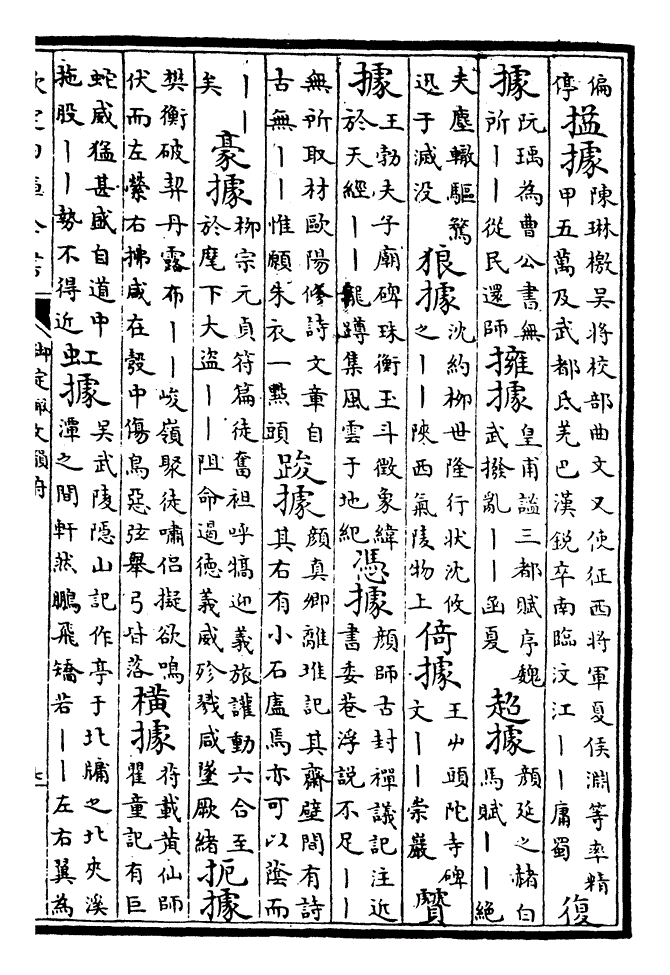 偏停搤據陳琳檄吳將校部曲文又使征西將軍夏侯淵等率精甲五萬及武都氐羌巴漢銳卒南臨汶江――庸蜀復
據阮瑀為曹公書無所――從民還師擁據皇甫謐三都賦序魏武撥亂――函夏超據顔延之赭白馬賦――絶
夫塵轍驅騖迅于滅没狼據沈約柳世隆行状沈攸之――陜西氣陵物上倚據王屮頭陀寺碑文――崇巖贙
據王勃夫子廟碑珠衡玉斗徵象緯於天經――龍蹲集風雲于地紀憑據顔師古封禪議記注近書委巷浮説不足――
無所取材歐陽修詩文章自古無――惟願朱衣一點頭踆據顔真卿離堆記其齋壁間有詩其右有小石廬焉亦可以蔭而
――矣豪據柳宗元貞符篇徒奮袒呼犒迎義旅讙動六合至於麾下大盗――阻命遏德義威殄戮咸墜厥緒扼據
樊衡破契丹露布――峻嶺聚徒嘯侶擬欲鳴伏而左縈右拂咸在彀中傷鳥惡弦舉弓皆落橫據符載黄仙師瞿童記有巨
蛇威猛甚盛自道中拖股――勢不得近虹據吳武陵隱山記作亭于北牖之北夾溪潭之間軒然鵬飛矯若――左右翼為